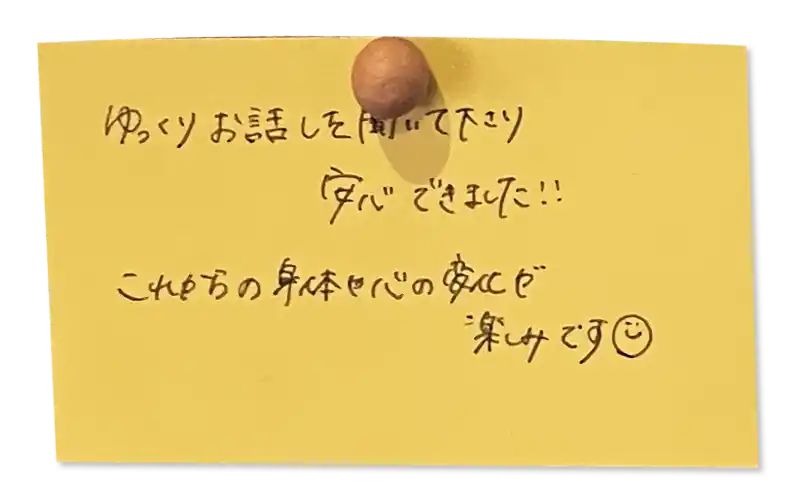 ゆっくりお話しを聞いて下さり
安心できました!!
これからの身体や心の変化が
楽しみです